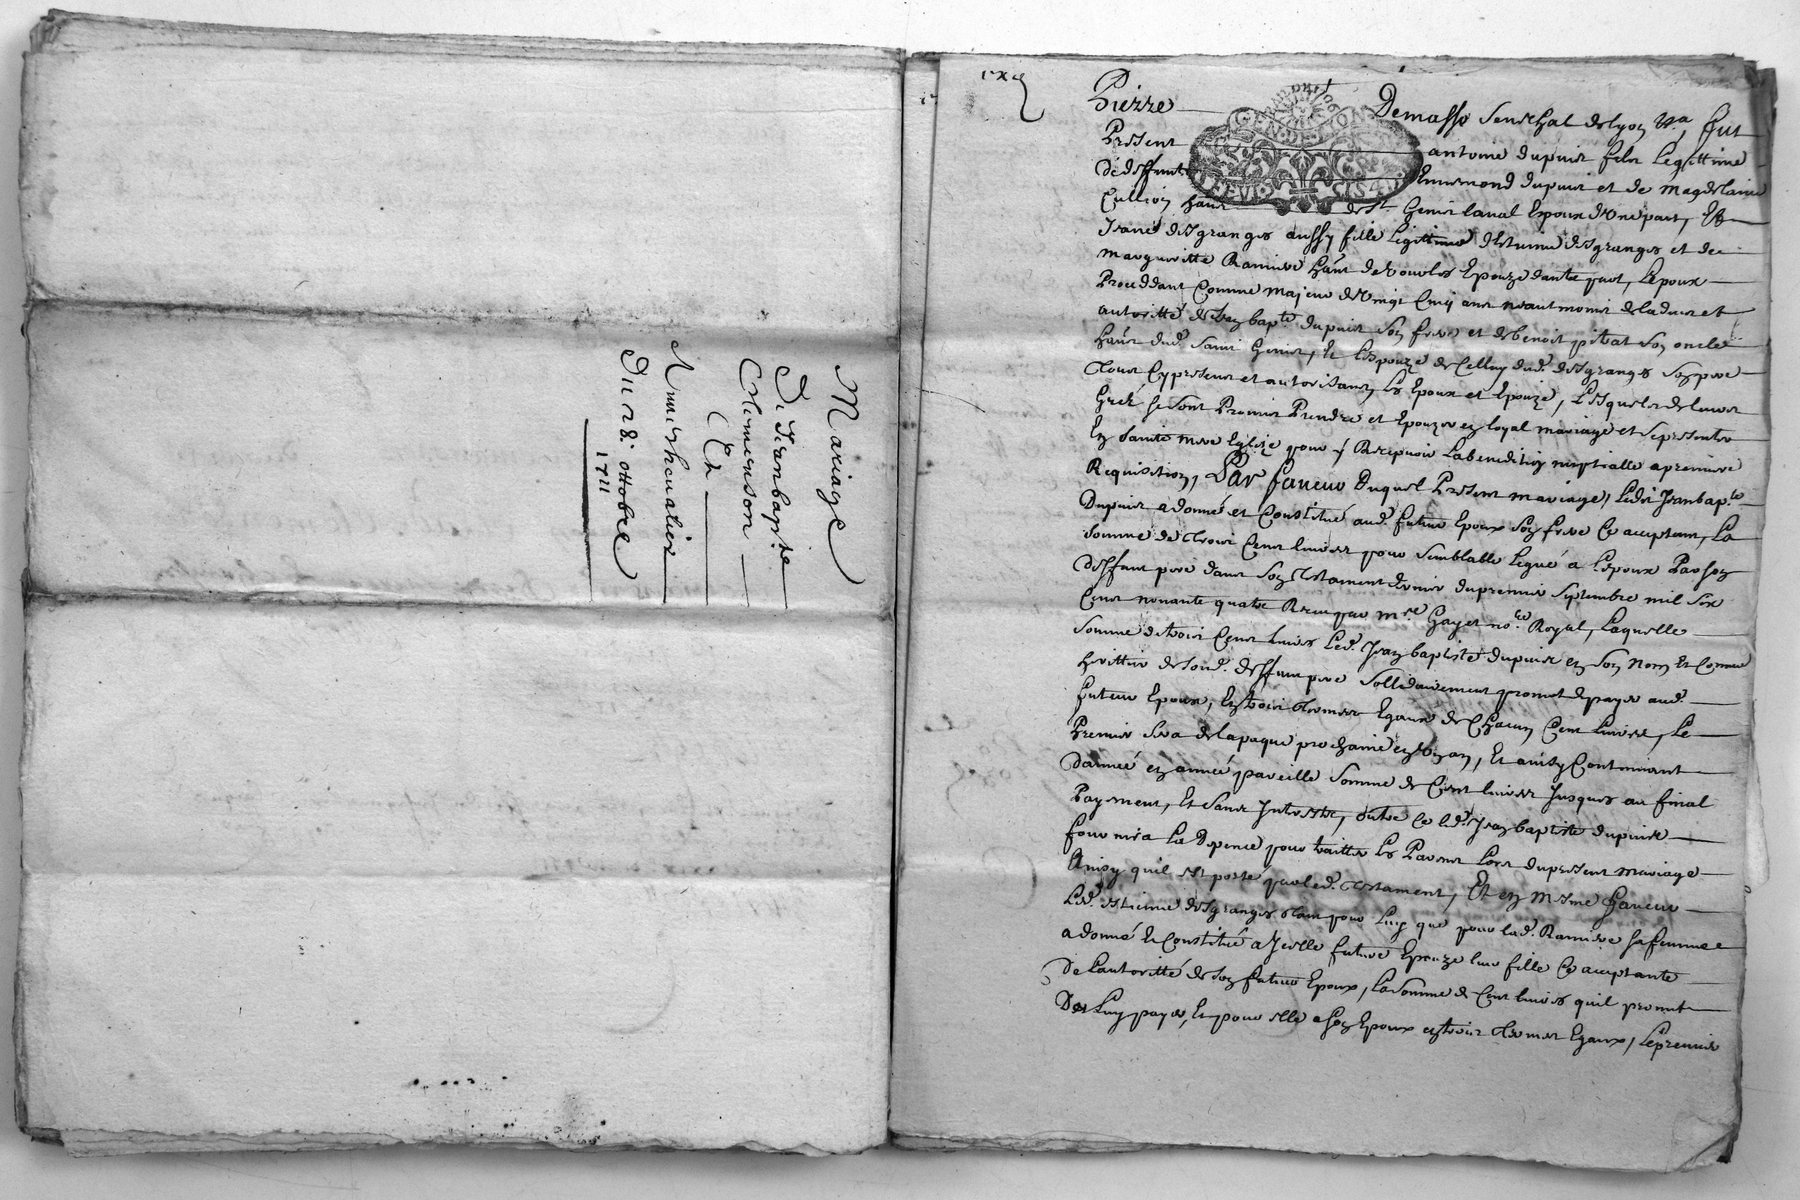 Mariage
De Jeanbapte
Clemenson
Et
Anne chevalier
Du 28: ottobre
1711
Pierre Demasso senechal de lyon
Present antoine dupuis fils Legittime
De deffunt Ennemond dupuis et de Magdelaine
Cullion hants de St. Genis laval Epoux d'une part, Et
Jeane desgranges aussy fille Legittime d'estienne desgranges et de
margueritte Ramiere hant de Epouze dautre part, L'epoux
Proceddant Comme majeur de vingt Cinq ans neautmoins de ladvis et
autoritté de Jean bapte dupuis son frere et de benoit pitiot son oncle
hants dud. saint Genis, et L'espouze de Celluy dud. desgranges son pere
Tous Cy presents et autorisants Les Epoux et Epouze, Lesquels de leurs
Gréz se sont Promis Prendre et Epouzer en loyal mariage et se presenter
En sainte mere Eglize pour y Recepvoir La benediction nuptialle a premiere
Requisition, Par faveur Duquel Present mariage, Ledit Jean bapte
Dupuis a donné et Constitué aud. futur Epoux son frere Ce acceptant, La
somme de Trois Cents livres pour semblable Legué a L'epoux Par son
deffunt pere dans son Testament dernier du premier septembre mil six
Cents nonante quatre Receu par Mre Gayet nore Royal, Laquelle
somme de trois Cents livres Led. Jean baptiste dupuis en son nom Et Comme
herittier de sond. deffunt pere sollidairement promet de payer aud.
futeur Epoux, En trois Termes Egaux de Chacun Cent livres, Le
Premier sera de la paque prochaine en un an, Et ainsy Continuant
d'année en année pareille somme de Cent livres Jusques au final
Payement, Et sans Interests, outre Ce led. Jean baptiste dupuis
fournira La Depence pour traitter Les Parens Lors du present mariage
Ainsy quil est porté par led. Testament, Et en mesme faveur
Led. estienne desgranges tant pour Luy que pour lad. Ramiere sa femme
a donné Et Constitué a Jcelle future Epouze leur fille Ce acceptante
De L'autoritté de son futur Epoux, La somme de Cent livres quil promet
De Luy payer, Et pour elle a son Epoux en trois Termes Egaux, Le premier